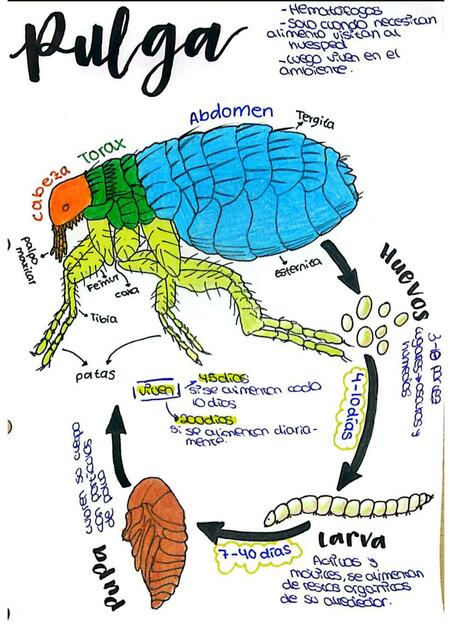 Pulga
- Hematófagos
- Solo cuando necesitan
alimento visitan al
huesped
- Luego viven en el
ambiente.
Abdomen
Tergita
Torax
Cabeza
palpo
maxilar
Femur
coxa
Tibia
esternita
patas
Huevos
lugares oscuros y
humedos
4-10 días
viven
45 días
si se alimentan cada
10 días
200 días
si se alimentan diaria-
mente.
Larva
Activas y
móviles, se alimentan
de restos organicos
de su alrededor.
7-40 días
pupa